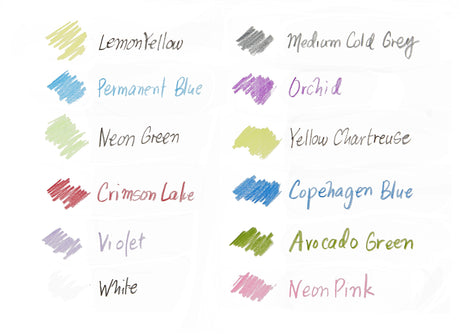 Lemon Yellow
Permanent Blue
Neon Green
Crimson Lake
Violet
White
Medium Cold Grey
Orchid
Yellow Chartreuse
Copehagen Blue
Avocado Green
Neon Pink